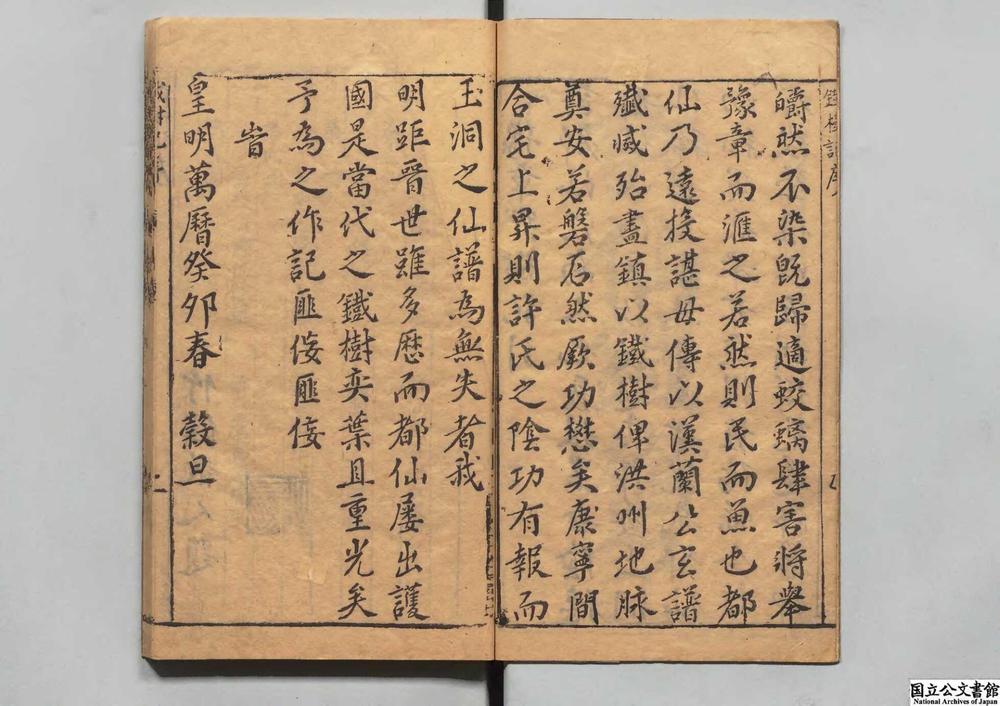 皭然不染旣歸適蛟螭肆害將舉
豫章而滙之若然則民而魚也都
仙乃遠投諶母傳以漢蘭公玄譜
殱滅殆盡鎮以鐵樹俾洪州地脉
奠安若磐石然厥功懋矣康寧間
合宅上昇則許氏之陰功有報而
玉洞之仙譜為無失者哉
明距晉世雖多歷而都仙屢出護
國是當代之鐵樹奕葉且重光矣
予為之作記匪佞匪佞
旹
皇明萬曆癸卯春 穀旦
国立公文書館
National Archives of Japan